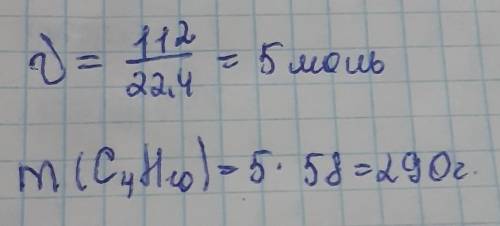 ν = 112/22,4 = 5 моль
m(C₄H₁₀) = 5 · 58 = 290 г.